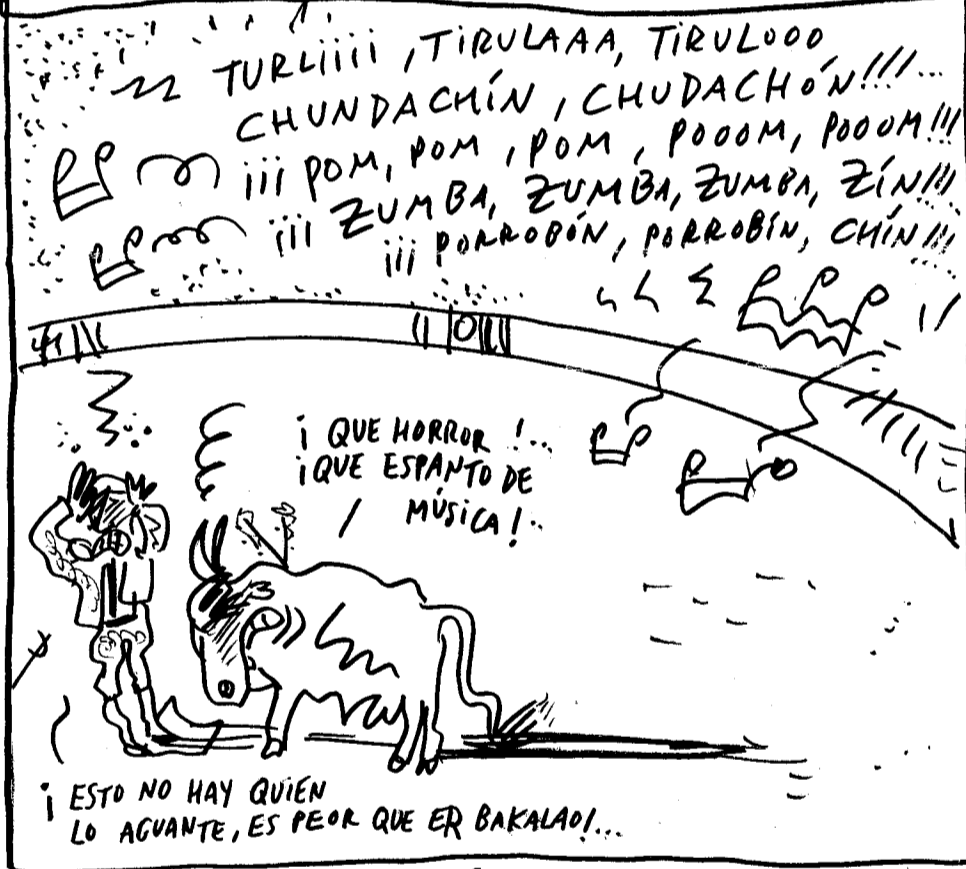 TURLiiii, TiRULAAA, TiRULOOO
CHUNDACHÍN, CHUDACHÓN!!!...
¡¡¡ POM, POM, POM, POOOM, POOOM!!!
¡¡¡ ZUMBA, ZUMBA, ZUMBA, ZÍN!!!
¡¡¡ PORROBÓN, PORROBÍN, CHÍN!!!
¡ QUE HORROR !..
¡QUE ESPANTO DE
MÚSICA!..
¡ ESTO NO HAY QUIEN
LO AGUANTE, ES PEOR QUE ER BAKALAO!...